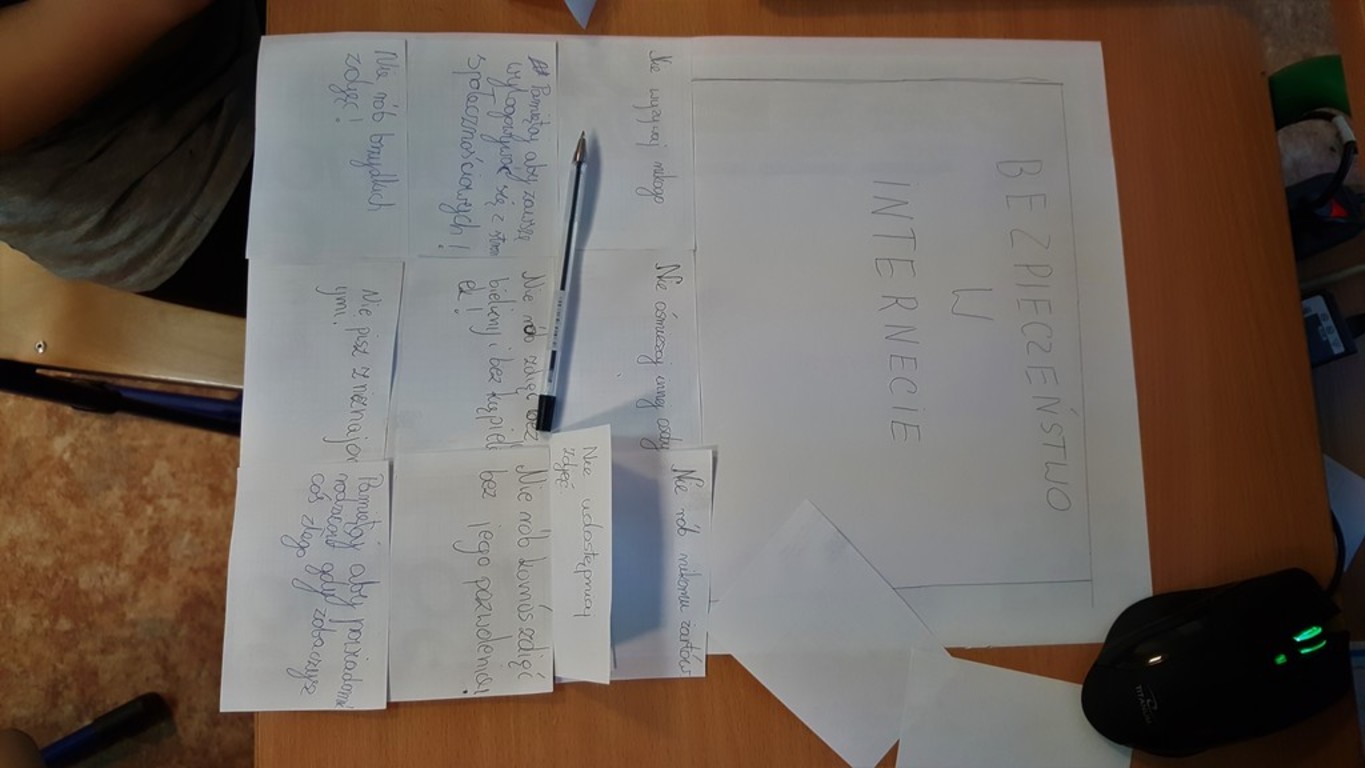 BEZPIECZEŃSTWO
W
INTERNECIE
Nie wyzywaj nikogo
Nie ośmieszaj innej osoby
Nie rób nikomu żartów
Pamiętaj aby zawsze
wylogowywać się z stron
społecznościowych!
Nie rób zdjęć bez
bielizny i bez kąpieló
ek!
Nie udostępniaj
zdjęć
Nie rób komuś zdjęć
bez jego pozwolenia.
Nie rób brzydkich
zdjęć!
Nie pisz z nieznajom
ymi.
Pamiętaj aby powiadomić
rodziców gdy zobaczysz
coś złego
TITANUM